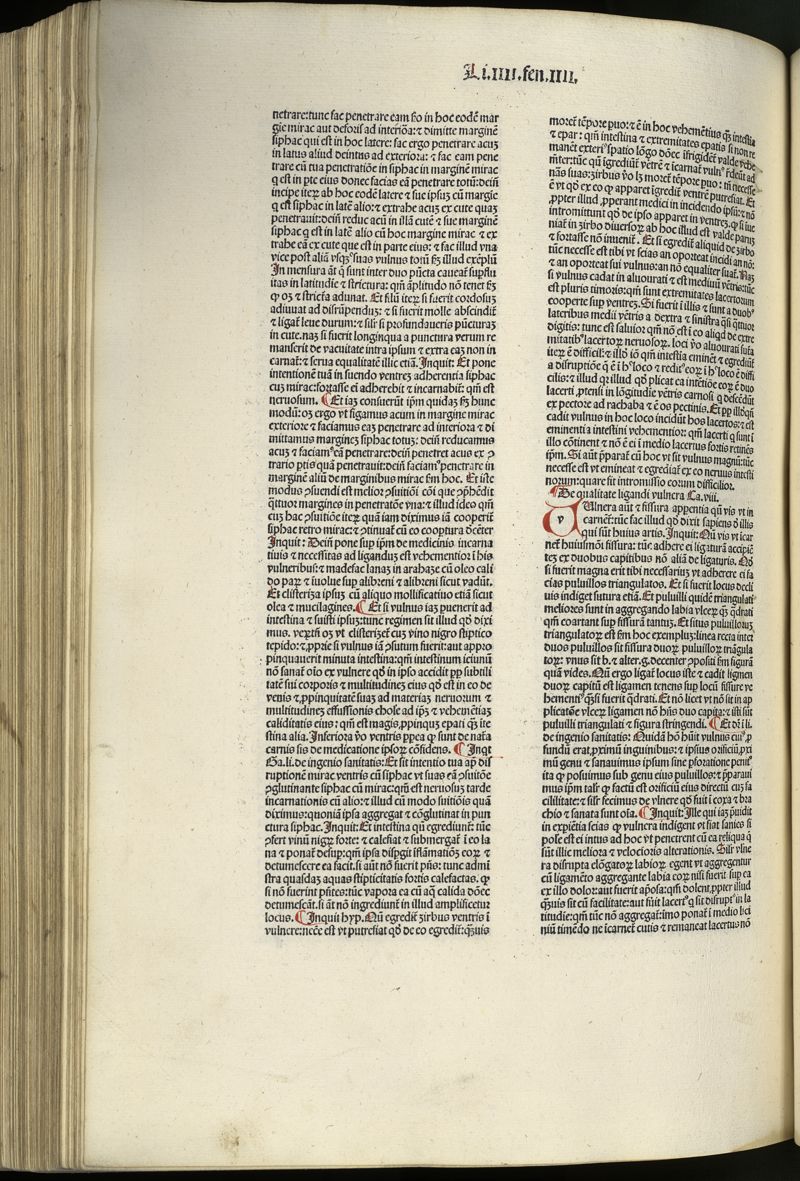 Li.IIII.fen.IIII.
netrare:tunc fac penetrare eam ẜo in hoc eodē mar
gie mirac aut deforis ad interiōa: ⁊ dimitte marginē
siphac qui est in hoc latere: fac ergo penetrare acuȝ
in latus aliud deintus ad exteriora: ⁊ fac eam pene
trare cū tua penetratiōe in siphac in marginē mirac
q est in pte eius donec facias eā penetrare totū:dein̄
incipe iteꝝ ab hoc eodē latere ⁊ sue ipsuȝ cū margie
q est siphac in latē alio: ⁊ extrahe acuȝ ex cute quaȝ
penetrauit:dein̄ reduc acū in illā cutē ⁊ sue marginē
siphac q est in latē alio cū hoc margine mirac ⁊ ex
trahe eā ex cute que est in parte eius: ⁊ fac illud vna
vice post aliā vsqȝ suas vulnus totū fȝ illud exēplū
In mensura āt q̄ sunt inter duo pūcta caueat̄ supflu
itas in latitudie ⁊ strictura: qm̄ āplitudo nō tenet fȝ
ꝙ oȝ ⁊ stricta adunat. Et filū iteꝝ si fuerit cordosuȝ
adiuuat ad disrūpenduȝ: ⁊ si fuerit molle abscindit̄
⁊ ligat̄ leue durum: ⁊ silr̄ si profundaueris pūcturaȝ
in cute.naȝ si fuerit longinqua a punctura verum re
manserit de vacuitate intra ipsum ⁊ extra eaȝ non in
carnat̄: ⁊ serua equalitatē illic etiā. Inquit: Et pone
intentionē tuā in suendo ventreȝ adherentia siphac
cuȝ mirac:fortasse ei adherebit ⁊ incarnabit̄: qm̄ est
neruosum. ¶Et iaȝ consuerūt ip̄m quidaȝ fȝ hunc
modū: oȝ ergo vt figamus acum in margine mirac
exteriore ⁊ faciamus eaȝ penetrare ad interiora ⁊ di
mittamus margineȝ siphac totuȝ: dein̄ reducamus
acuȝ ⁊ faciamꝰ eā penetrare:dein̄ penetret acus ex ↄ̄
trario ptis quā penetrauit:dein̄ faciamꝰ penetrare in
marginē aliū de marginibus mirac fm̄ hoc. Et iste
modus ꝯsuendi est melior ꝯsuitiōi cōi que ꝯphēdit
q̄ttuor margines in penetratōe vna: ⁊ illud ideo qm̄
cuȝ hac ꝯsuitiōe iteꝝ quā iam diximus iā cooperit̄
siphac retro mirac: ⁊ ꝯtinuat̄ cū eo cooptura dēcēter
Inquit: Dein̄ pone sup ip̄m de medicinis incarna
tiuis ⁊ necessitas ad liganduȝ est vehementior ī his
vulneribus: ⁊ madefac lanaȝ in arabaȝe cū oleo cali
do paꝝ ⁊ īuolue sup alibreni ⁊ alibreni sicut vadūt.
Et clisteriȝa ipsuȝ cū aliquo mollificatiuo etiā sicut
olea ⁊ mucilagines. ¶Et si vulnus iaȝ puenerit ad
intestina ⁊ suisti ipsuȝ:tunc regimen sit illud qđ dixi
mus. verūtn̄ oȝ vt cliſteriȝet̄ cuȝ vino nigro stiptico
tepido: ⁊ ꝓprie si vulnus iā ꝑsutum fuerit:aut appro
pinquauerit minuta intestina:qm̄ intestinum ieiunū
nō sanat̄ oīo ex vulnere qđ in ipso accidit ꝓp subtili
tatē sui corporis ⁊ multitudineȝ eius qđ est in eo de
venis ⁊ ꝓpinquitatē suaȝ ad materiaȝ neruorum ⁊
multitudineȝ effusionis chole ad ip̄ȝ ⁊ vehemētiaȝ
caliditatis eius: qm̄ est magis ꝓpinquȝ epati q̄ȝ ite
stina alia. Inferiora ṽo ventris ꝓpea ꝙ sunt de natā
carnis sis de medicatione ipsoꝝ cōfidens. ¶Inqt
Ga.li.de ingenio sanitatis: Et sit intentio tua ap̄d dis
ruptionē mirac ventris cū siphac vt suas eā ꝯsuitōe
ꝯglutinante siphac cū mirac:qm̄ est neruosuȝ tarde
incarnationis cū alio: ⁊ illud cū modo suitiōis quā
diximus:quoniā ipsa aggregat ⁊ cōglutinat in pun
ctura siphac. Inquit: Et intestina qn̄ egrediunt̄: tūc
ꝯfert vinū nigꝝ forte: ⁊ calefiat ⁊ submergat̄ ī eo la
na ⁊ ponat̄ desup:qm̄ ipsa dispgit īflamatiōȝ eoꝝ ⁊
detumescere ea facit.si aūt nō fuerit pn̄s: tunc admī
stra quasdaȝ aquas stipticitatis fortis calefactas. ꝙ
si nō fuerint pn̄tes: tūc vapora ea cū aq̄ calida donec
detumescāt.si āt nō ingrediunt̄ in illud amplificetur
locus. ¶Inquit hyp. Nū̄ egredit̄ ȝirbus ventris ī
vulnere:necē est vt putrefiat qđ de eo egredit̄: q̄uis
moret̄ tēpore puo: ⁊ ē in hoc vehemētius q̄ȝ intestia
⁊ epar: qm̄ intestina ⁊ extremitates epatis si non re
manēt exteriꝰ spatio lōgo dōec īfrigidēt̄ valde vehe
mēter: tūc qn̄ īgrediūt̄ vētrē ⁊ īcarnat̄ vulnꝰ r̄deūt ad
nās suas: ȝirbus ṽo lȝ moret̄ tēpore puo: tn̄ necesse
ē vt qđ ex eo ꝙ apparet īgredit̄ ventrē putrefiat. Et
ꝓpter illud ꝓperant medici in incidendo ipsuȝ: ⁊ nō
intromittunt qđ de ipso apparet in ventreȝ. ꝙ si iue
niat̄ in ȝirbo diuersoꝝ ab hoc illud est valde paruȝ
⁊ fortasse nō inuenit̄. Et si egredit̄ aliquid de ȝirbo
tūc necesse est tibi vt scias an oporteat incidi an nō:
⁊ an oporteat sui vulnus:an nō equaliter suat̄. Naȝ
si vulnus cadat in aliuourati ⁊ est mediuȝ vētris:tūc
est pluris timoris:qm̄ sunt extremitates lacertorum
cooperte sup ventreȝ. Si fuerit ī illis ⁊ sunt a duobꝰ
lateribus medii vētris a dextra ⁊ sinistra q̄si q̄ttuor
digitis: tunc est saluior qm̄ nō est ī eo aliqđ de extre
mitatibꝰ lacertoꝝ neruosoꝝ. loci ṽo aliuourati suta
iteꝝ ē difficil̄: ⁊ illđ iō qm̄ intestia eminēt ⁊ egrediūt̄
a disruptiōe q̄ ē ī hꝰ loco ⁊ reditꝰ eoꝝ ī hꝰ loco ē diffi
cilis: ⁊ illud qr̄ illud qđ plicat ea intētiōe eoꝝ ē duo
lacerti ꝓtensi in lōgitudie vētris carnosi q̄ descēdūt
ex pectore ad rachaba ⁊ ē os pectinis. Et ꝓp illđ qn̄
cadit vulnus in hoc loco incidūt̄ hos lacertos: ⁊ est
eminentia intestini vehementior: qm̄ lacerti q̄ sunt ī
illo cōtinent ⁊ nō ē ei ī medio lacertus fortis retinēs
ip̄m. Si aūt p̄parat̄ cū hoc vt sit vulnus magnū:tūc
necesse est vt emineat ⁊ egrediat̄ ex eo neruus intesti
norum:quare fit intromissio eorum difficilior.
¶De qualitate ligandi vulnera Ca.viii.
VUlnera aūt ⁊ fissura appentia qn̄ vis vt in
carnēt̄: tūc fac illud qđ dixit sapiens đ illis
qui sūt huius artis. Inquit: Nū̄ vis vt icar
net̄ huiusmōi fissura: tūc adhere ei ligaturā accipiē
tes ex duobus capitibus nō aliā de ligaturis. Nō
si fuerit magna erit tibi necessariuȝ vt adhere ei fa
cias puluillos triangulatos. Et si fuerit locus decli
uis indiget sutura etiā. Et puluilli quidē triangulati
meliores sunt in aggregando labia vlceꝝ q̄ȝ q̄drati
qm̄ coartant sup fissurā tantuȝ. Et situs puluillorū
triangulatoꝝ est fm̄ hoc exempluȝ:linea recta inter
duos puluillos sit fissura duoꝝ puluilloꝝ triāgula
toꝝ: vnus sit b. ⁊ alter.g.decenter ꝯpositi fm̄ figurā
quā vides. Nū̄ ergo ligat̄ locus iste ⁊ cadit ligmen
duoꝝ capitū est ligamen tenens sup locū fissure ve
hemēniꝰ q̄ȝ si fuerit q̄drati. Et nō licet vt nō sit in ap
plicatōe vlceꝝ ligamen nō hn̄s duo capita: ⁊ isti sūt
puluilli triangulati ⁊ figura stringendi. ¶Et dr̄ ī li.
de ingenio sanitatis: Quidā hō hūit vulnus cuiꝰ ꝓ
fundū erat ꝓximū inguinibus: ⁊ ipsius orificiū ꝓxi
mū genu ⁊ sanauimus ipsum sine pforatione peniti
ita ꝙ posuimus sub genu eius puluillos: ⁊ p̄parauī
mus ip̄m talr̄ ꝙ factū est orificiū eius directū cuȝ fa
cilitate: ⁊ silr̄ fecimus de vlnere qđ fuit ī coxa ⁊ bra
chio ⁊ sanata sunt oīa. ¶Inquit: Ille qui iaȝ p̄uidit
in expiētia scias ꝙ vulnera indigent vt fiat sanies si
pole est ei intus ad hoc vt penetrent cū ea reliqua q̄
sūt illic meliora ⁊ velocioris alterationis. Silr̄ vlne
ra disrupta elōgatoꝝ labioꝝ egent vt aggregentur
cū ligamēto aggregante labia eoꝝ nisi fuerit sup ea
ex illo dolor:aut fuerit ap̄osa:qm̄ dolent ꝓpter illud
q̄uis sit cū facilitate: aut fuit lacertꝰ q̄ sit disruptꝰ in la
titudie:qm̄ tūc nō aggregat̄:imo ponat̄ ī medio lici
niū timēdo ne īcarnet̄ cutis ⁊ remaneat lacertus nō